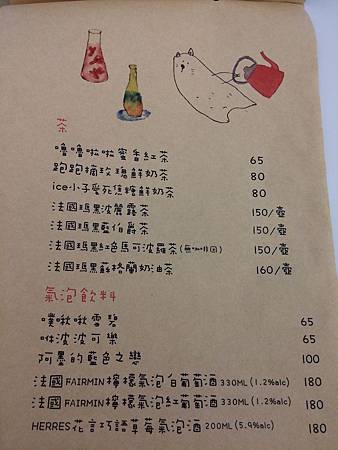 茶
嚕嚕啦啦蜜香紅茶 65
跑跑摘玫瑰鮮奶茶 80
ice小子愛死焦糖鮮奶茶 80
法國瑪黑波麗露茶 150/壺
法國瑪黑藍伯爵茶 150/壺
法國瑪黑紅色馬可波羅茶(無咖啡因) 150/壺
法國瑪黑蘇格蘭奶油茶 160/壺
氣泡飲料
噗啾啾雪碧 65
咻波波可樂 65
阿墨的藍色之戀 100
法國FAIRMIN檸檬氣泡白葡萄酒330ML(1.2%alc) 180
法國FAIRMIN檸檬氣泡紅葡萄酒330ML(1.2%alc) 180
HERRES花言巧語草莓氣泡酒200ML(5.9%alc) 180